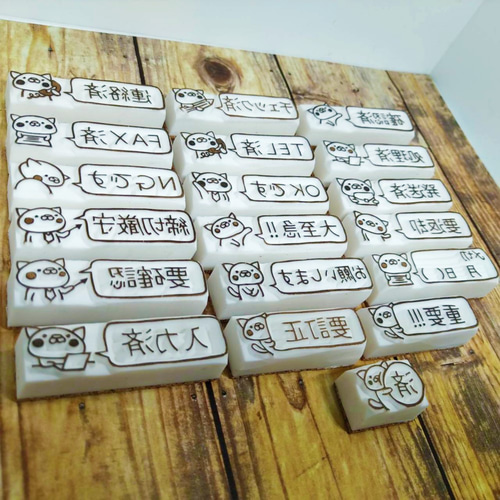 連絡済
チェック済
確認済
FAX済
TEL済
処理済
NGです
OKです
発送済
締切厳守
大至急!!
要返却
要確認
お願いします
〆切
月 日( )
入力済
要訂正
重要!!!
済